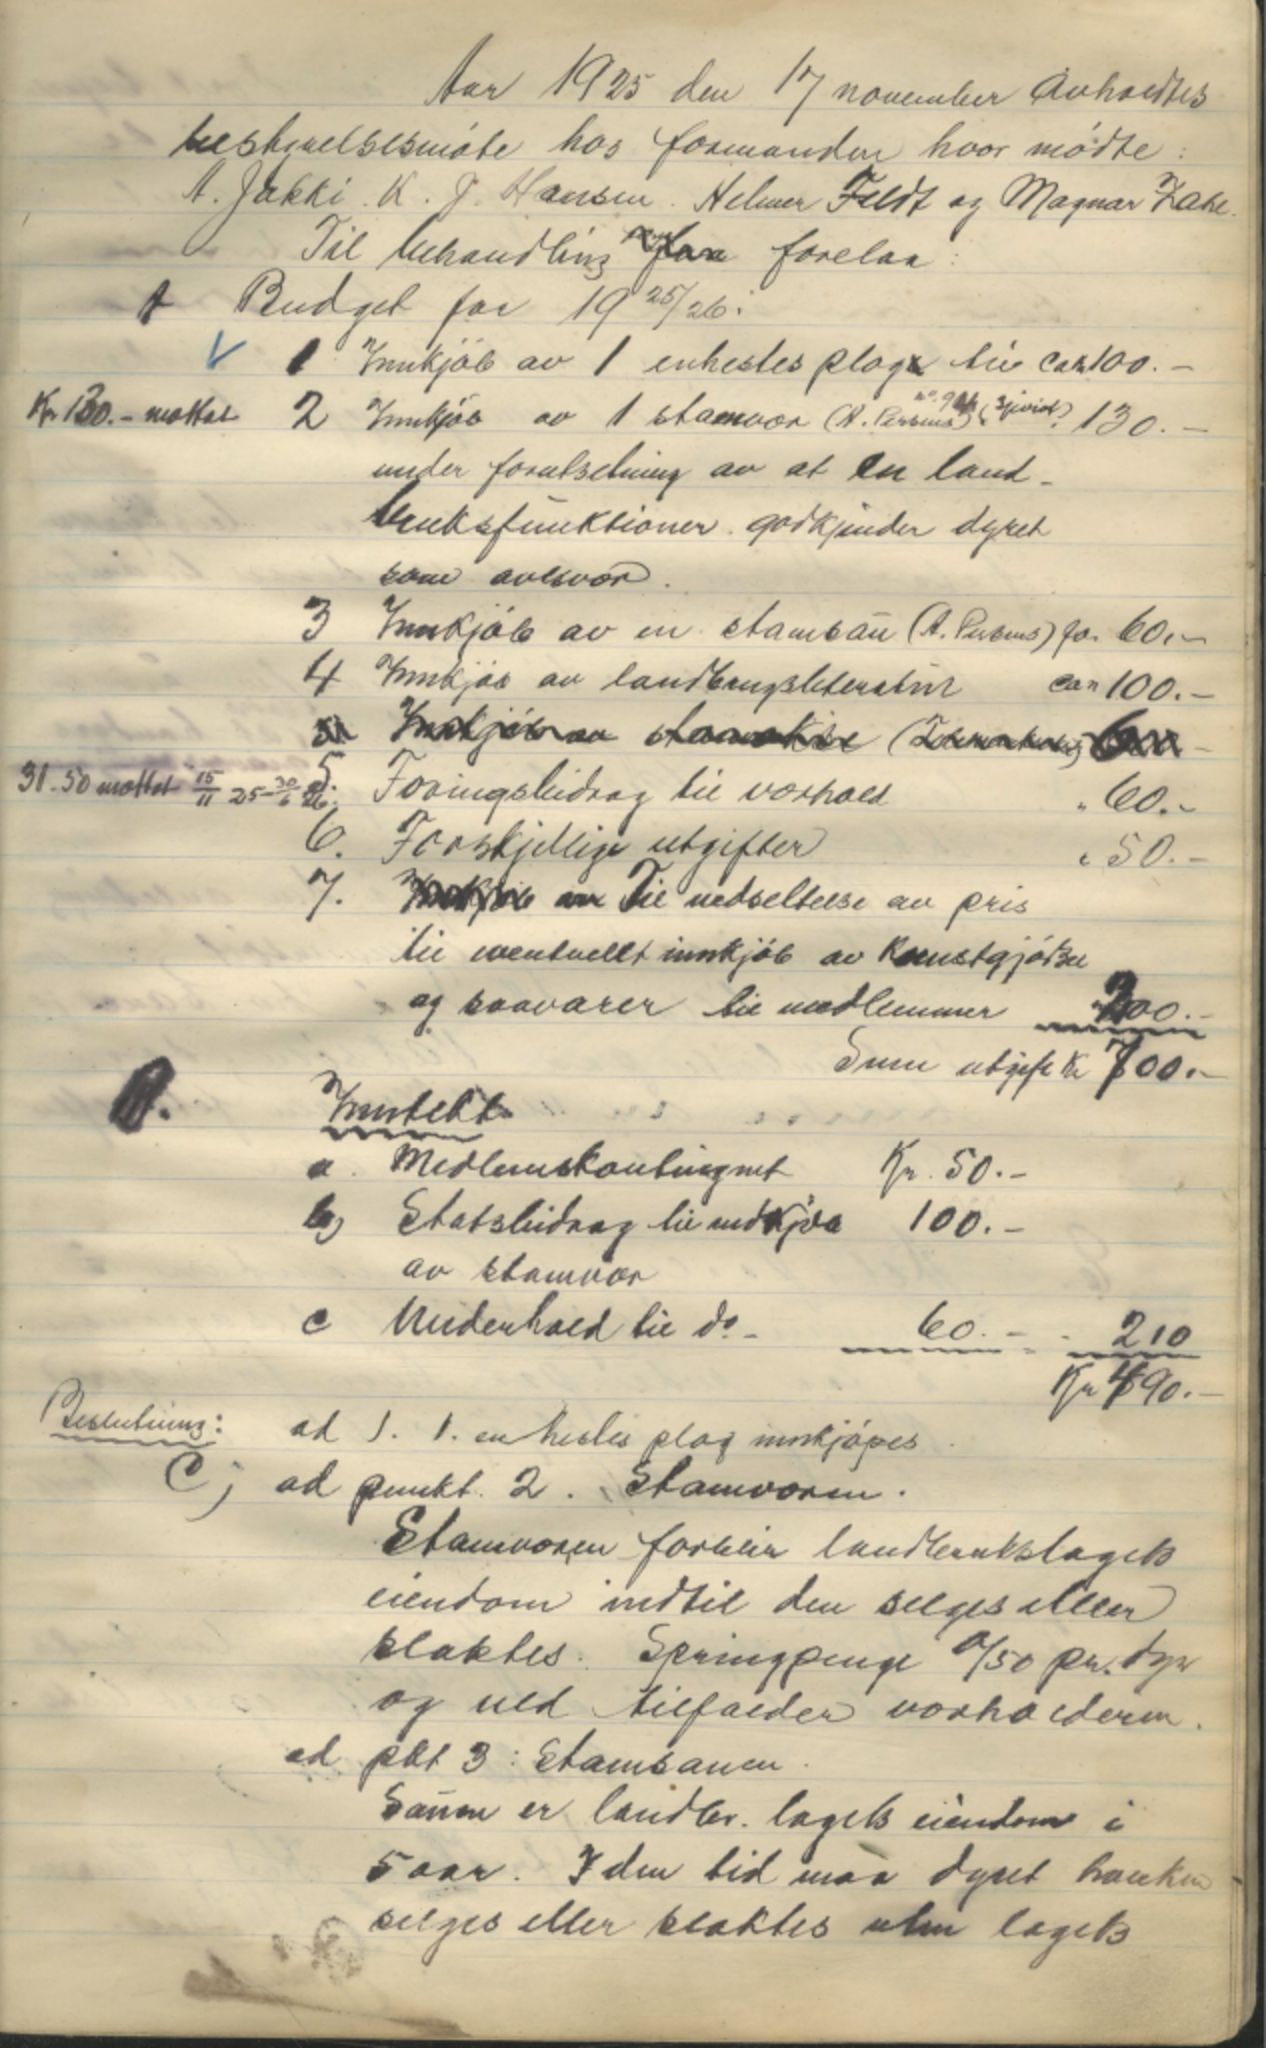 Aar 1925 den 17 november avholdtes
bestyrelsesmöte hos formanden hvor mödte:
A. Jakki. K. J. Hansen. Helmer Feldt og Magnar
Til behandling forelaa:
A Budget for 1925/26:
1 Innkjöb av 1 enhestes plog til ca kr 100.-
Kr 130.- mottat 2 Innkjöb av 1 stamvær (A. Persens) 130.-
under forutsetning av at en land-
bruksfunktionær godkjender dyret
som avlsvær.
3 Innkjöb av en stamsau (A. Persens) for 60.-
4 Innkjöb av landbrugsliteratur ca " 100.-
Innkjöb av
31.50 mottat 15/11 25-30/6 26. 5. Foringsbidrag til værhold " 60.-
6. Forskjellige utgifter " 50.-
7. Innkjöb av Til nedsettelse av pris
til eventuellt innkjöb av kunstgjödsel
og saavarer til medlemmer 200.-
Sum utgift Kr 700.-
B. Inntekt
a. Medlemskontingent Kr. 50.-
b) Statsbidrag til indkjöb 100.-
av stamvær
c Underhold til do- 60.- - 210
Kr 490.-
Beslutning: ad 1. 1. enhestes plog innkjöpes.
C) ad punkt. 2. Stamværen.
Stamværen forblir landbrukslagets
eiendom indtil den selges eller
slaktes. Springpenge 0/50 pr. dyr
og uld tilfalder værholderen.
ad pkt 3: Stamsauen.
Sauen er landbr. lagets eiendom i
5 aar. I den tid maa dyret hverken
selges eller slaktes uten lagets